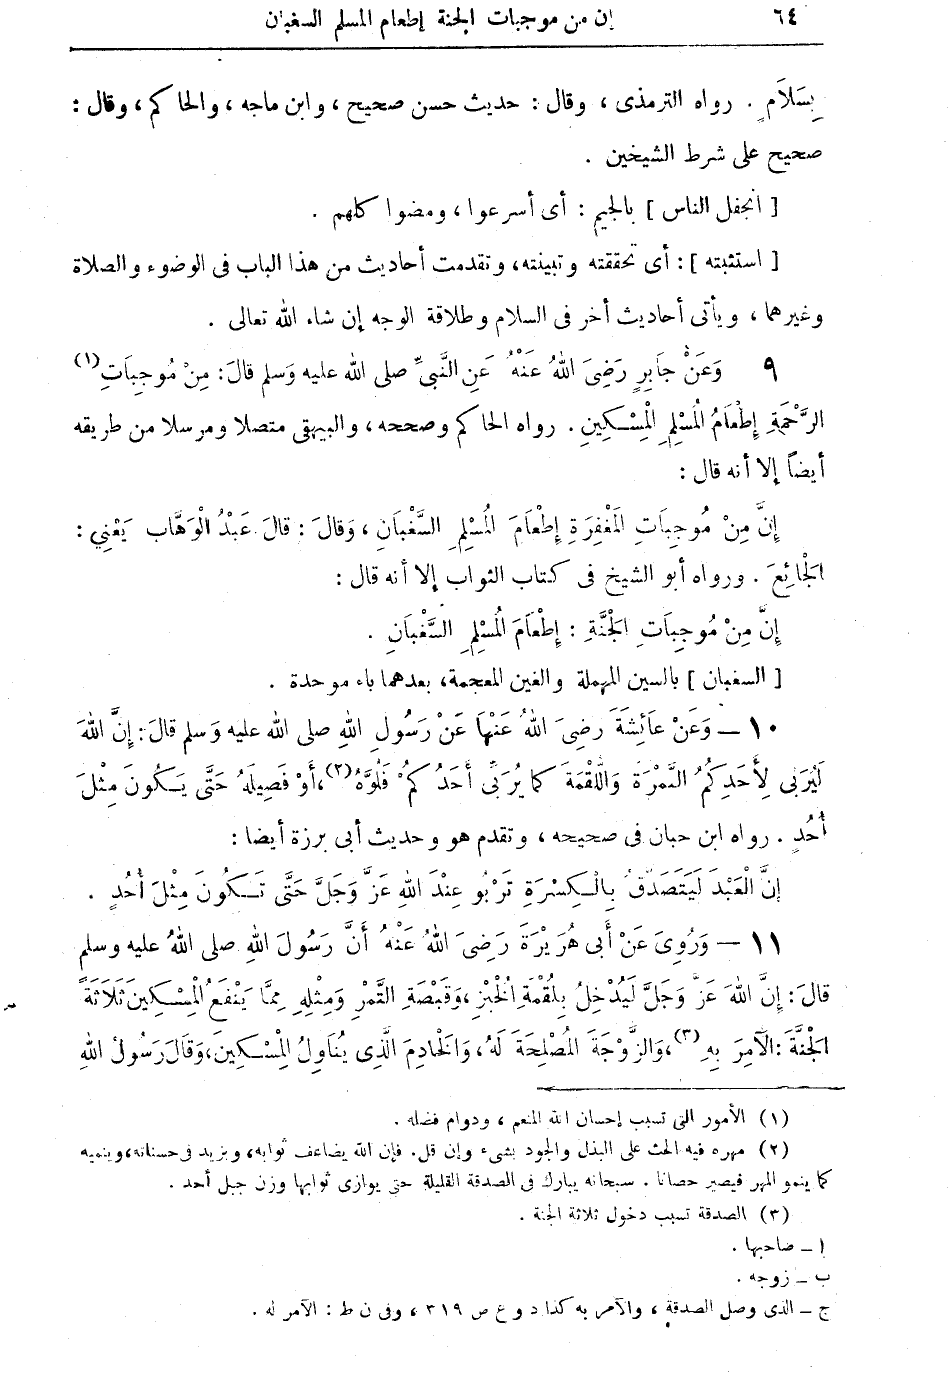 ٦٤ إن من موجبات الجنة إطعام المسلم السغبان
بِسَلَامٍ . رواه الترمذى ، وقال : حديث حسن صحيح ، وابن ماجه ، والحاكم ، وقال :
صحيح على شرط الشيخين .
[ انجفل الناس ] بالجيم : أى أسرعوا ، ومضوا كلهم .
[ استثبته ] : أى تحققته وتبينته، وتقدمت أحاديث من هذا الباب فى الوضوء والصلاة
وغيرهما ، ويأتى أحاديث أخر فى السلام وطلاقة الوجه إن شاء الله تعالى .
٩ وَعَنْ جَابِرٍ رَضِىَ اللهُ عَنْهُ عَنِ النَّبِىِّ صلى الله عليه وَسلم قالَ: مِنْ مُوجِبَاتِ (١)
الرَّحْمَةِ إِطْعَامُ الْمُسْلِمِ الْمِسْكِينِ . رواه الحاكم وصححه ، والبيهقى متصلا ومرسلا من طريقه
أيضاً إلا أنه قال :
إِنَّ مِنْ مُوجِبَاتِ الْمَغْفِرَةِ إِطْعَامَ الْمُسْلِمِ السَّغْبَانِ ، وَقالَ : قالَ عَبْدُ الْوَهَّابِ يَعْنِي :
الْجَائِعَ . ورواه أبو الشيخ فى كتاب الثواب إلا أنه قال :
إِنَّ مِنْ مُوجِبَاتِ الْجَنَّةِ : إِطْعَامَ الْمُسْلِمِ السَّغْبَانِ .
[ السغبان ] بالسين المهملة والغين المعجمة، بعدهما باء موحدة .
١٠ — وَعَنْ عَائِشَةَ رَضِىَ اللهُ عَنْهَا عَنْ رَسُولِ اللهِ صلى الله عليه وَسلم قالَ : إِنَّ اللهَ
لَيُرَبِّى لِأَحَدِكُمُ التَّمْرَةَ وَاللُّقْمَةَ كما يُرَبِّى أَحَدُكُمْ فَلُوَّهُ (٢)، أَوْ فَصِيلَهُ حَتَّى يَكُونَ مِثْلَ
أُحُدٍ . رواه ابن حبان فى صحيحه ، وتقدم هو وحديث أبى برزة أيضا :
إِنَّ الْعَبْدَ لَيَتَصَدَّقُ بِالْكِسْرَةِ تَرْبُو عِنْدَ اللهِ عَزَّ وَجَلَّ حَتَّى تَكُونَ مِثْلَ أُحُدٍ .
١١ — وَرُوِىَ عَنْ أَبى هُرَيْرَةَ رَضِىَ اللهُ عَنْهُ أَنَّ رَسُولَ اللهِ صلى اللهُ عليه وسلم
قالَ : إِنَّ اللهَ عَزَّ وَجَلَّ لَيُدْخِلُ بِلُقْمَةِ الْخُبْزِ ، وَقَبْضَةِ التَّمْرِ وَمِثْلِهِ مِمَّا يَنْفَعُ الْمِسْكِينَ ثَلَاثَةً
الْجَنَّةَ : الْآمِرَ بِهِ (٣)، وَالزَّوْجَةَ الْمُصْلِحَةَ لَهُ ، وَالْخَادِمَ الَّذِى يُنَاوِلُ الْمِسْكِينَ ، وَقَالَ رَسُولُ اللهِ
(١) الأمور التى تسبب إحسان الله المنعم ، ودوام فضله .
(٢) مهره فيه الحث على البذل والجود بشىء وإن قل. فإن الله يضاعف ثوابه، ويزيد فى حسناته، وينميه
كما ينمو المهر فيصير حصانا . سبحانه يبارك فى الصدقة القليلة حتى يوازى ثوابها وزن جبل أحد .
(٣) الصدقة تسبب دخول ثلاثة الجنة .
ا — صاحبها .
ب — زوجه .
ج — الذى وصل الصدقة ، والآمر به كذا د و ع ص ٣١٩ ، وفى ن ط : الآمر له .